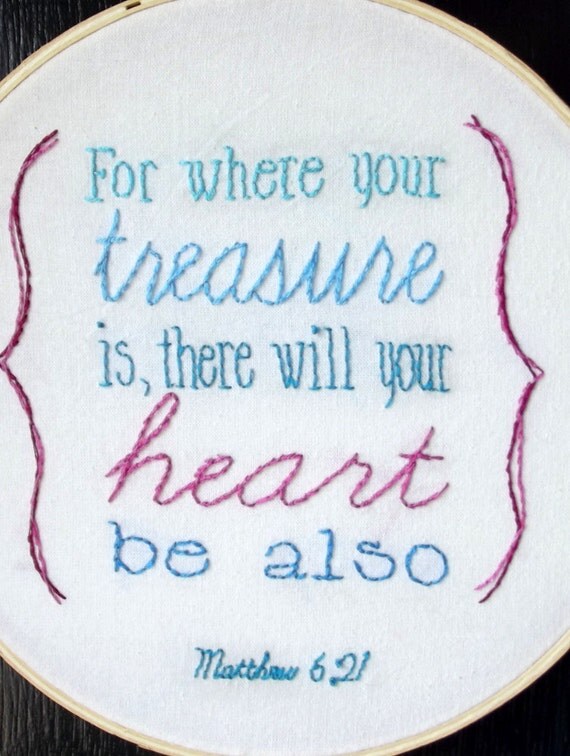 For where your
treasure
is, there will your
heart
be also
Matthew 6:21